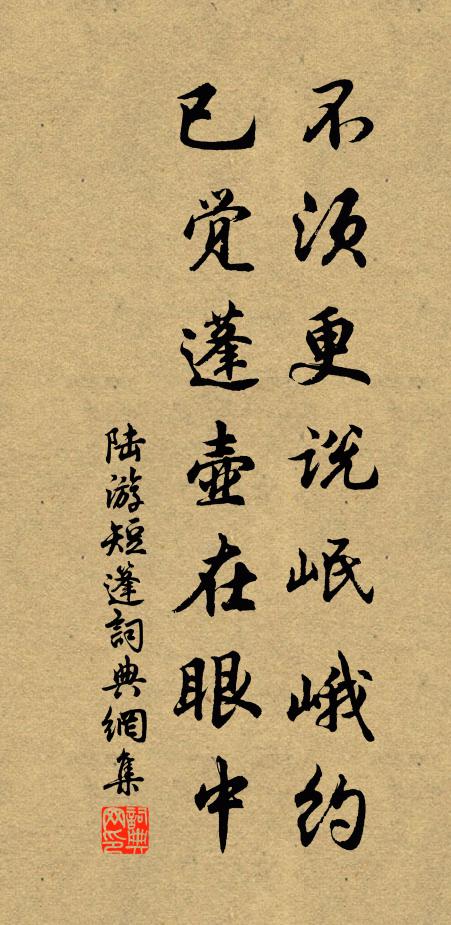 不须更说岷峨约
已觉蓬壶在眼中
陆游短蓬詞典網集
詞典网印